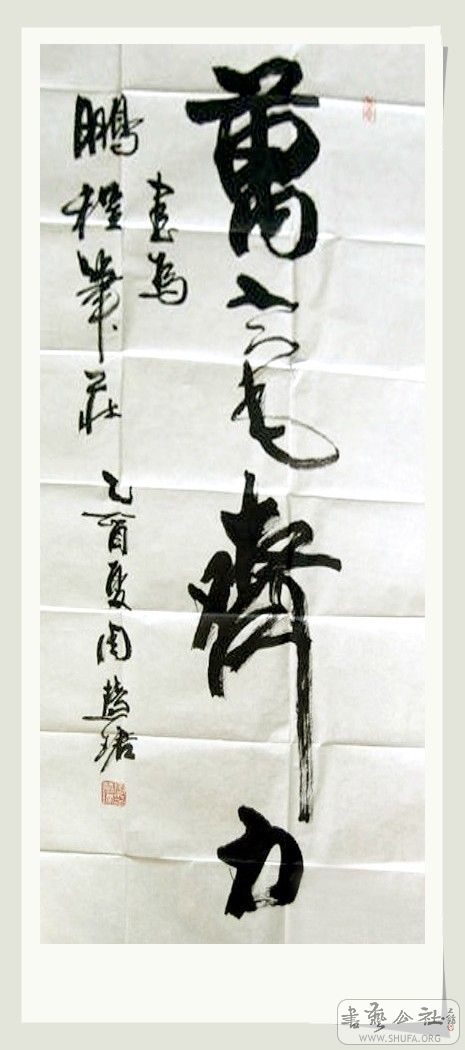 萬毫齊力
書為
鵬程筆莊
乙酉夏周慧珺
書藝公社
WWW.SHUFA.ORG